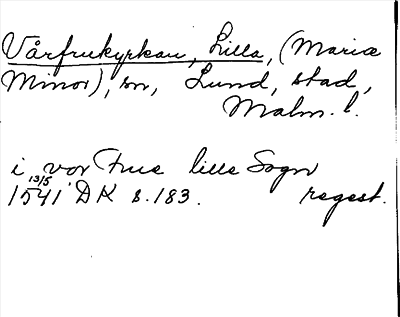 Vårfrukyrkan, Lilla, (Mariæ
Minor), sn, Lund, stad,
Malm. l.
i vor Frue lille Sogn
13/5
1541 DK s. 183. regest.